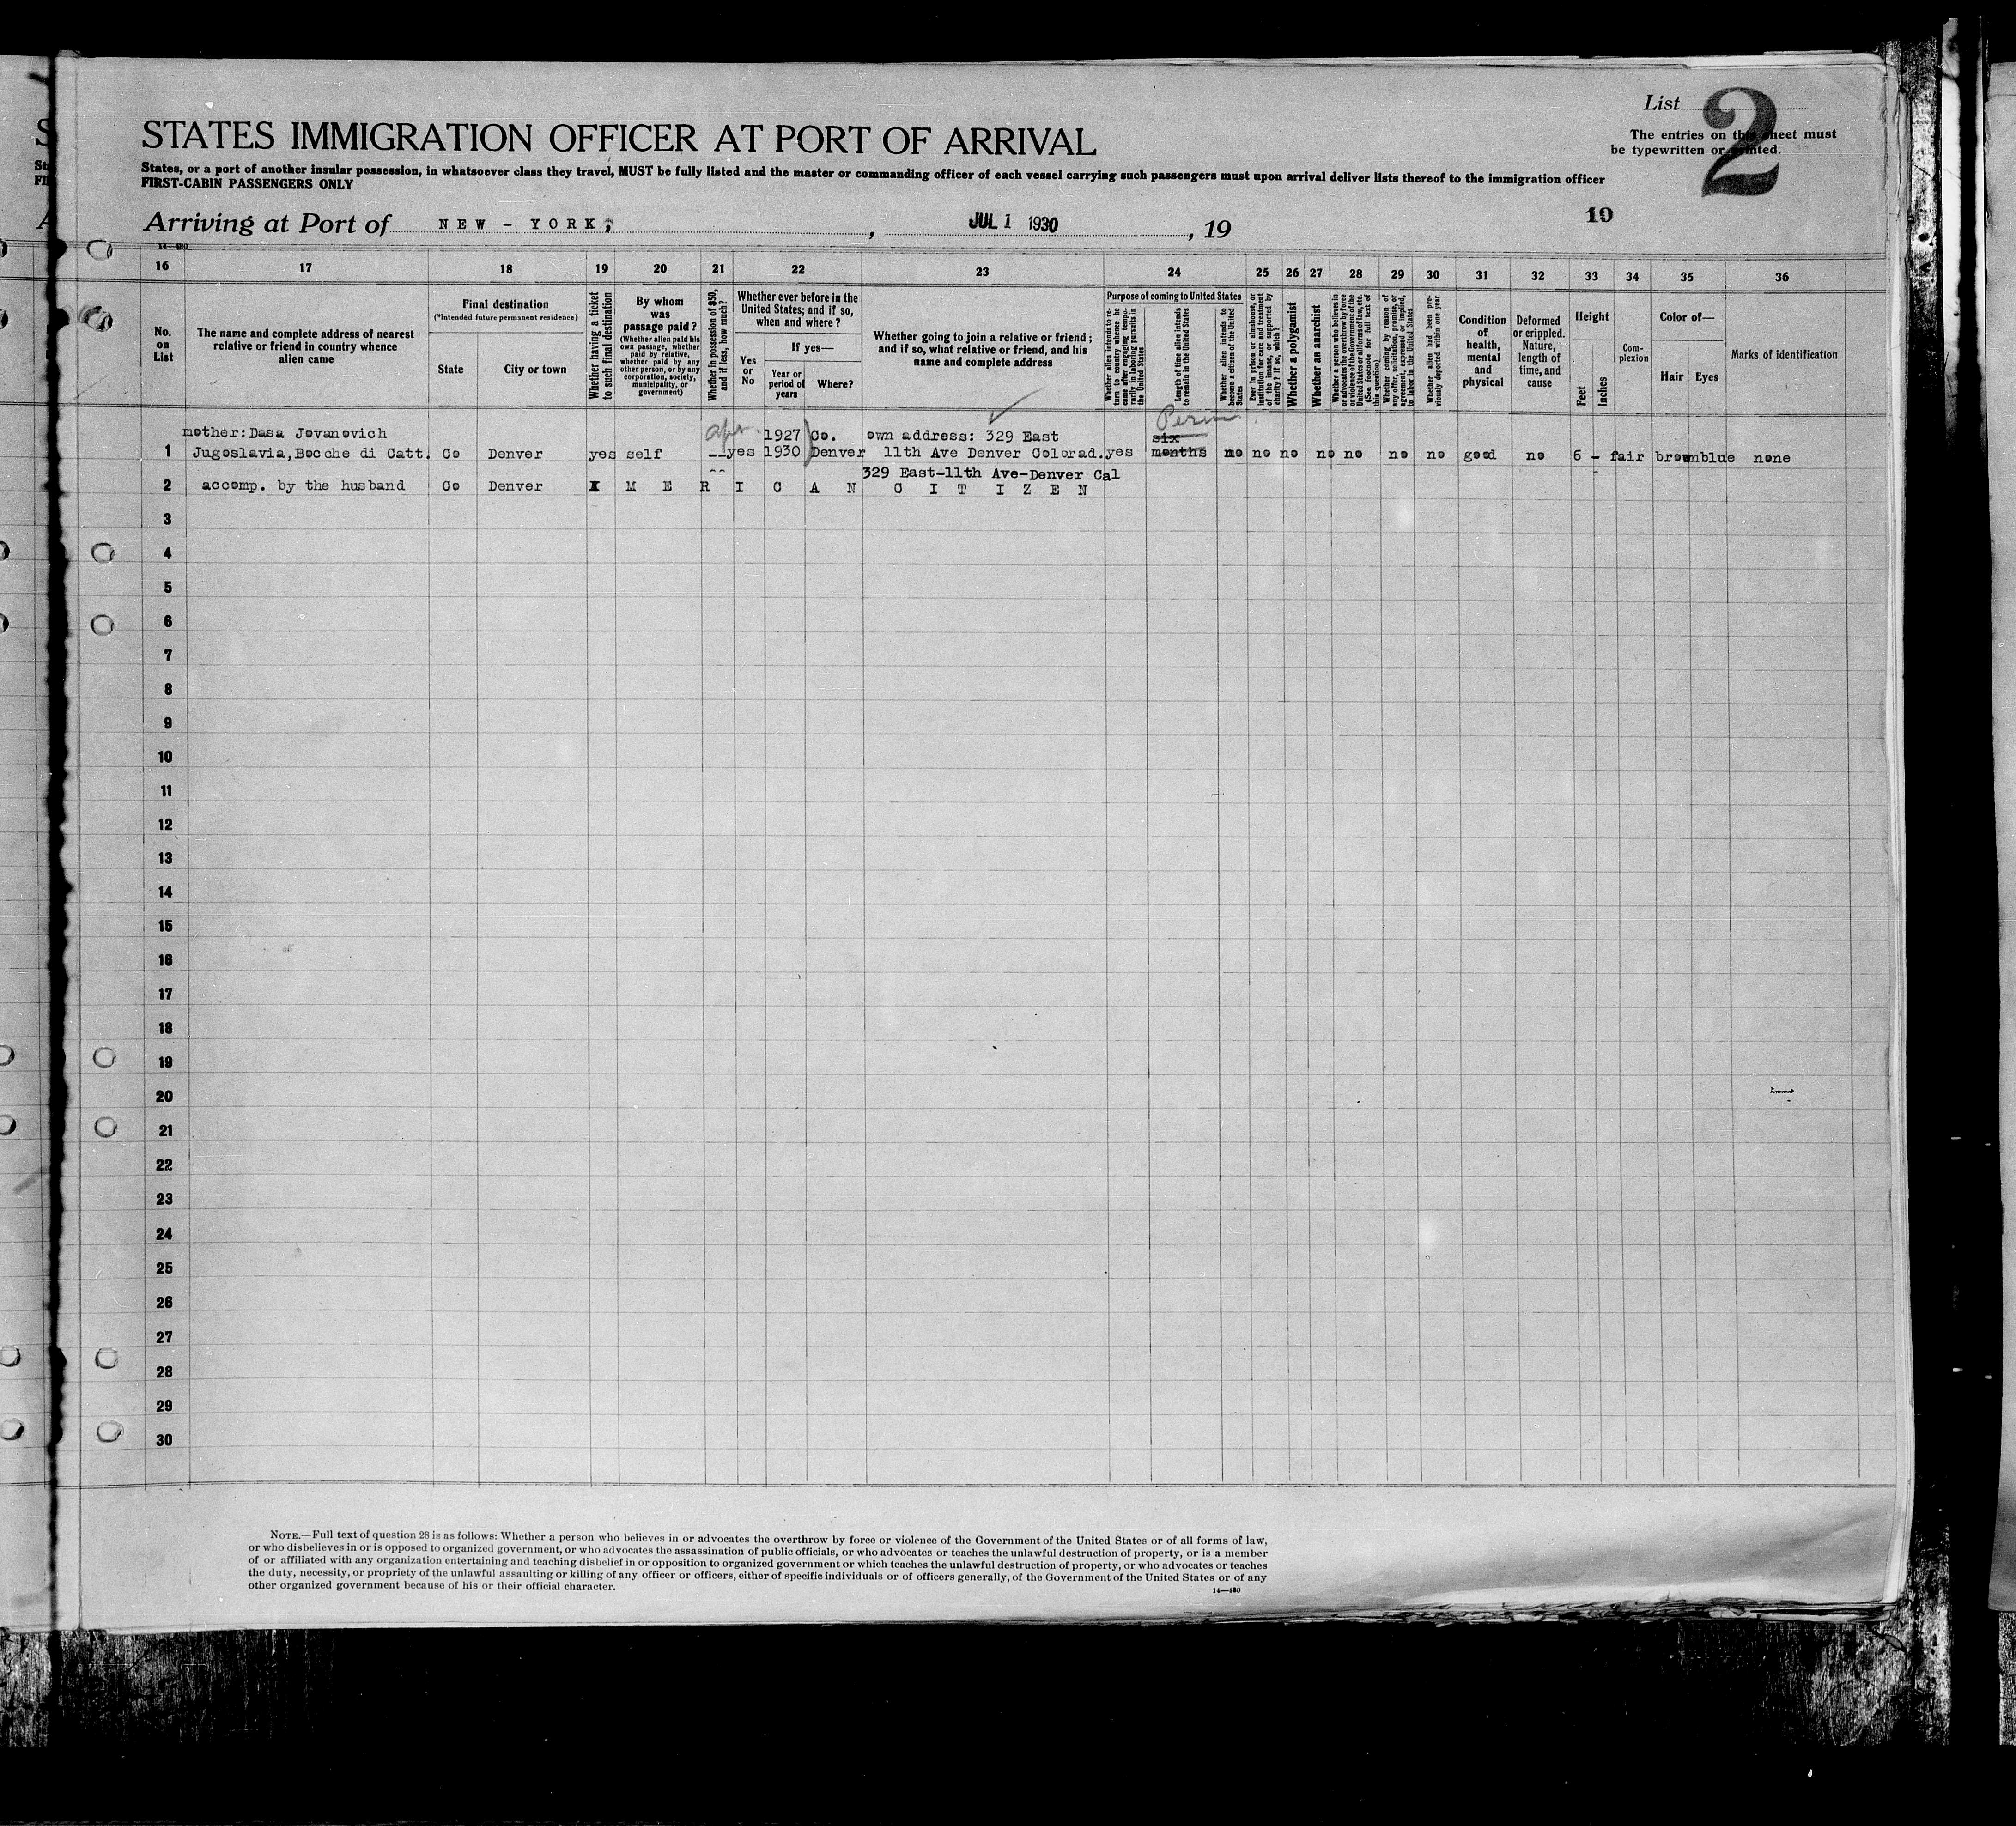 List 2
STATES IMMIGRATION OFFICER AT PORT OF ARRIVAL
The entries on this sheet must
be typewritten or printed.
States, or a port of another insular possession, in whatsoever class they travel, MUST be fully listed and the master or commanding officer of each vessel carrying such passengers must upon arrival deliver lists thereof to the immigration officer
FIRST-CABIN PASSENGERS ONLY
10
Arriving at Port of NEW-YORK, , JUL 1 1930 , 19
14—430
16 17 18 19 20 21 22 23 24 25 26 27 28 29 30 31 32 33 34 35 36
No. on List
The name and complete address of nearest
relative or friend in country whence
alien came
Final destination
(*Intended future permanent residence)
State
City or town
Whether having a ticket
to such final destination
By whom
was
passage paid?
(Whether alien paid his
own passage, whether
paid by relative,
whether paid by any
other person, or by any
corporation, society,
municipality, or
government)
Whether in possession of $50,
and if less, how much?
Whether ever before in the
United States; and if so,
when and where?
Yes
or
No
If yes—
Year or
period of
years
Where?
Whether going to join a relative or friend;
and if so, what relative or friend, and his
name and complete address
Purpose of coming to United States
Whether alien intends to re-
turn to country whence he
came after engaging tempo-
rarily in laboring pursuits in
the United States
Length of time alien intends
to remain in the United States
Whether alien intends to
become a citizen of the United
States
Ever in prison or almshouse, or
institution for care and treatment
of the insane, or supported by
charity? If so, which?
Whether a polygamist
Whether an anarchist
Whether a person who believes in
or advocates the overthrow by force
or violence of the Government of the
United States or all forms of law, etc.
(See footnote for full text of
this question)
Whether coming by reason of
any offer, solicitation, promise, or
agreement, expressed or implied,
to labor in the United States
Whether alien had been pre-
viously deported within one year
Condition
of
health,
mental
and
physical
Deformed
or crippled.
Nature,
length of
time, and
cause
Height
Feet
Inches
Com-
plexion
Color of—
Hair
Eyes
Marks of identification
mother:Dasa Jovanovich apr. 1927 Co. own address: 329 East six Perm
1 Jugoslavia,Bocche di Catt. Co Denver yes self -- yes 1930 Denver 11th Ave Denver Colorad. yes months no no no no no no no good no 6 - fair brown blue none
329 East-11th Ave-Denver Cal
2 accomp. by the husband Co Denver A M E R I C A N C I T I Z E N
3
4
5
6
7
8
9
10
11
12
13
14
15
16
17
18
19
20
21
22
23
24
25
26
27
28
29
30
NOTE.—Full text of question 28 is as follows: Whether a person who believes in or advocates the overthrow by force or violence of the Government of the United States or of all forms of law,
or who disbelieves in or is opposed to organized government, or who advocates the assassination of public officials, or who advocates or teaches the unlawful destruction of property, or is a member
of or affiliated with any organization entertaining and teaching disbelief in or opposition to organized government or which teaches the unlawful destruction of property, or who advocates or teaches
the duty, necessity, or propriety of the unlawful assaulting or killing of any officer or officers, either of specific individuals or of officers generally, of the Government of the United States or of any
other organized government because of his or their official character.
14—430